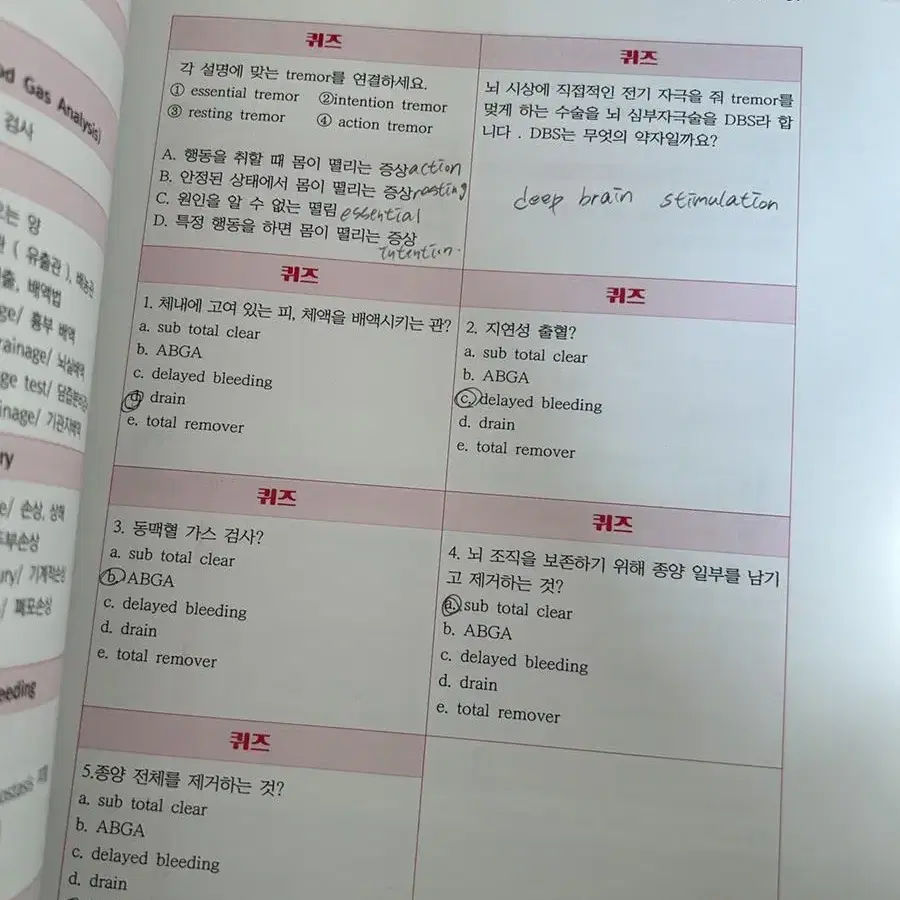 od Gas Analysis)
검사
오는 망
관 ( 유출관 ), 배농관
출, 배액법
ge/ 흉부 배액
rainage/ 뇌실배액
ge test/
inage/ 기관지배액
ry
e/ 손상, 상해
두부손상
ury/ 기계적손상
/ 폐포손상
eeding
ostasis
퀴즈
각 설명에 맞는 tremor를 연결하세요.
① essential tremor ②intention tremor
③ resting tremor ④ action tremor
A. 행동을 취할 때 몸이 떨리는 증상 action
B. 안정된 상태에서 몸이 떨리는 증상 resting
C. 원인을 알 수 없는 떨림 essential
D. 특정 행동을 하면 몸이 떨리는 증상
intention.
퀴즈
뇌 시상에 직접적인 전기 자극을 줘 tremor를
멎게 하는 수술을 뇌 심부자극술을 DBS라 합
니다 . DBS는 무엇의 약자일까요?
deep brain stimulation
퀴즈
1. 체내에 고여 있는 피, 체액을 배액시키는 관?
a. sub total clear
b. ABGA
c. delayed bleeding
d. drain
e. total remover
퀴즈
2. 지연성 출혈?
a. sub total clear
b. ABGA
c. delayed bleeding
d. drain
e. total remover
퀴즈
3. 동맥혈 가스 검사?
a. sub total clear
b. ABGA
c. delayed bleeding
d. drain
e. total remover
퀴즈
4. 뇌 조직을 보존하기 위해 종양 일부를 남기
고 제거하는 것?
a. sub total clear
b. ABGA
c. delayed bleeding
d. drain
e. total remover
퀴즈
5.종양 전체를 제거하는 것?
a. sub total clear
b. ABGA
c. delayed bleeding
d. drain